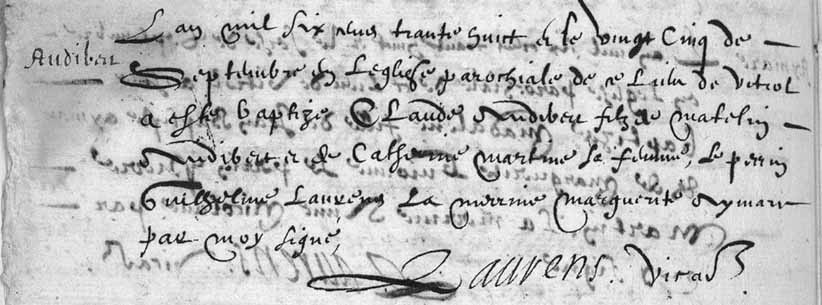 Audibert
L'an mil six cens trante huict & le vingt cinq de
Septembre en l'eglise parochiale de ce lieu de Vitrol
a este baptizé Claude Audibert filz de Matelin
Audibert et de Catherine Martine sa femme, le perrin
Guilheline Laurens la merrine Marguerite Aymare
par moy signé,
Laurens. Vicaɹ̃